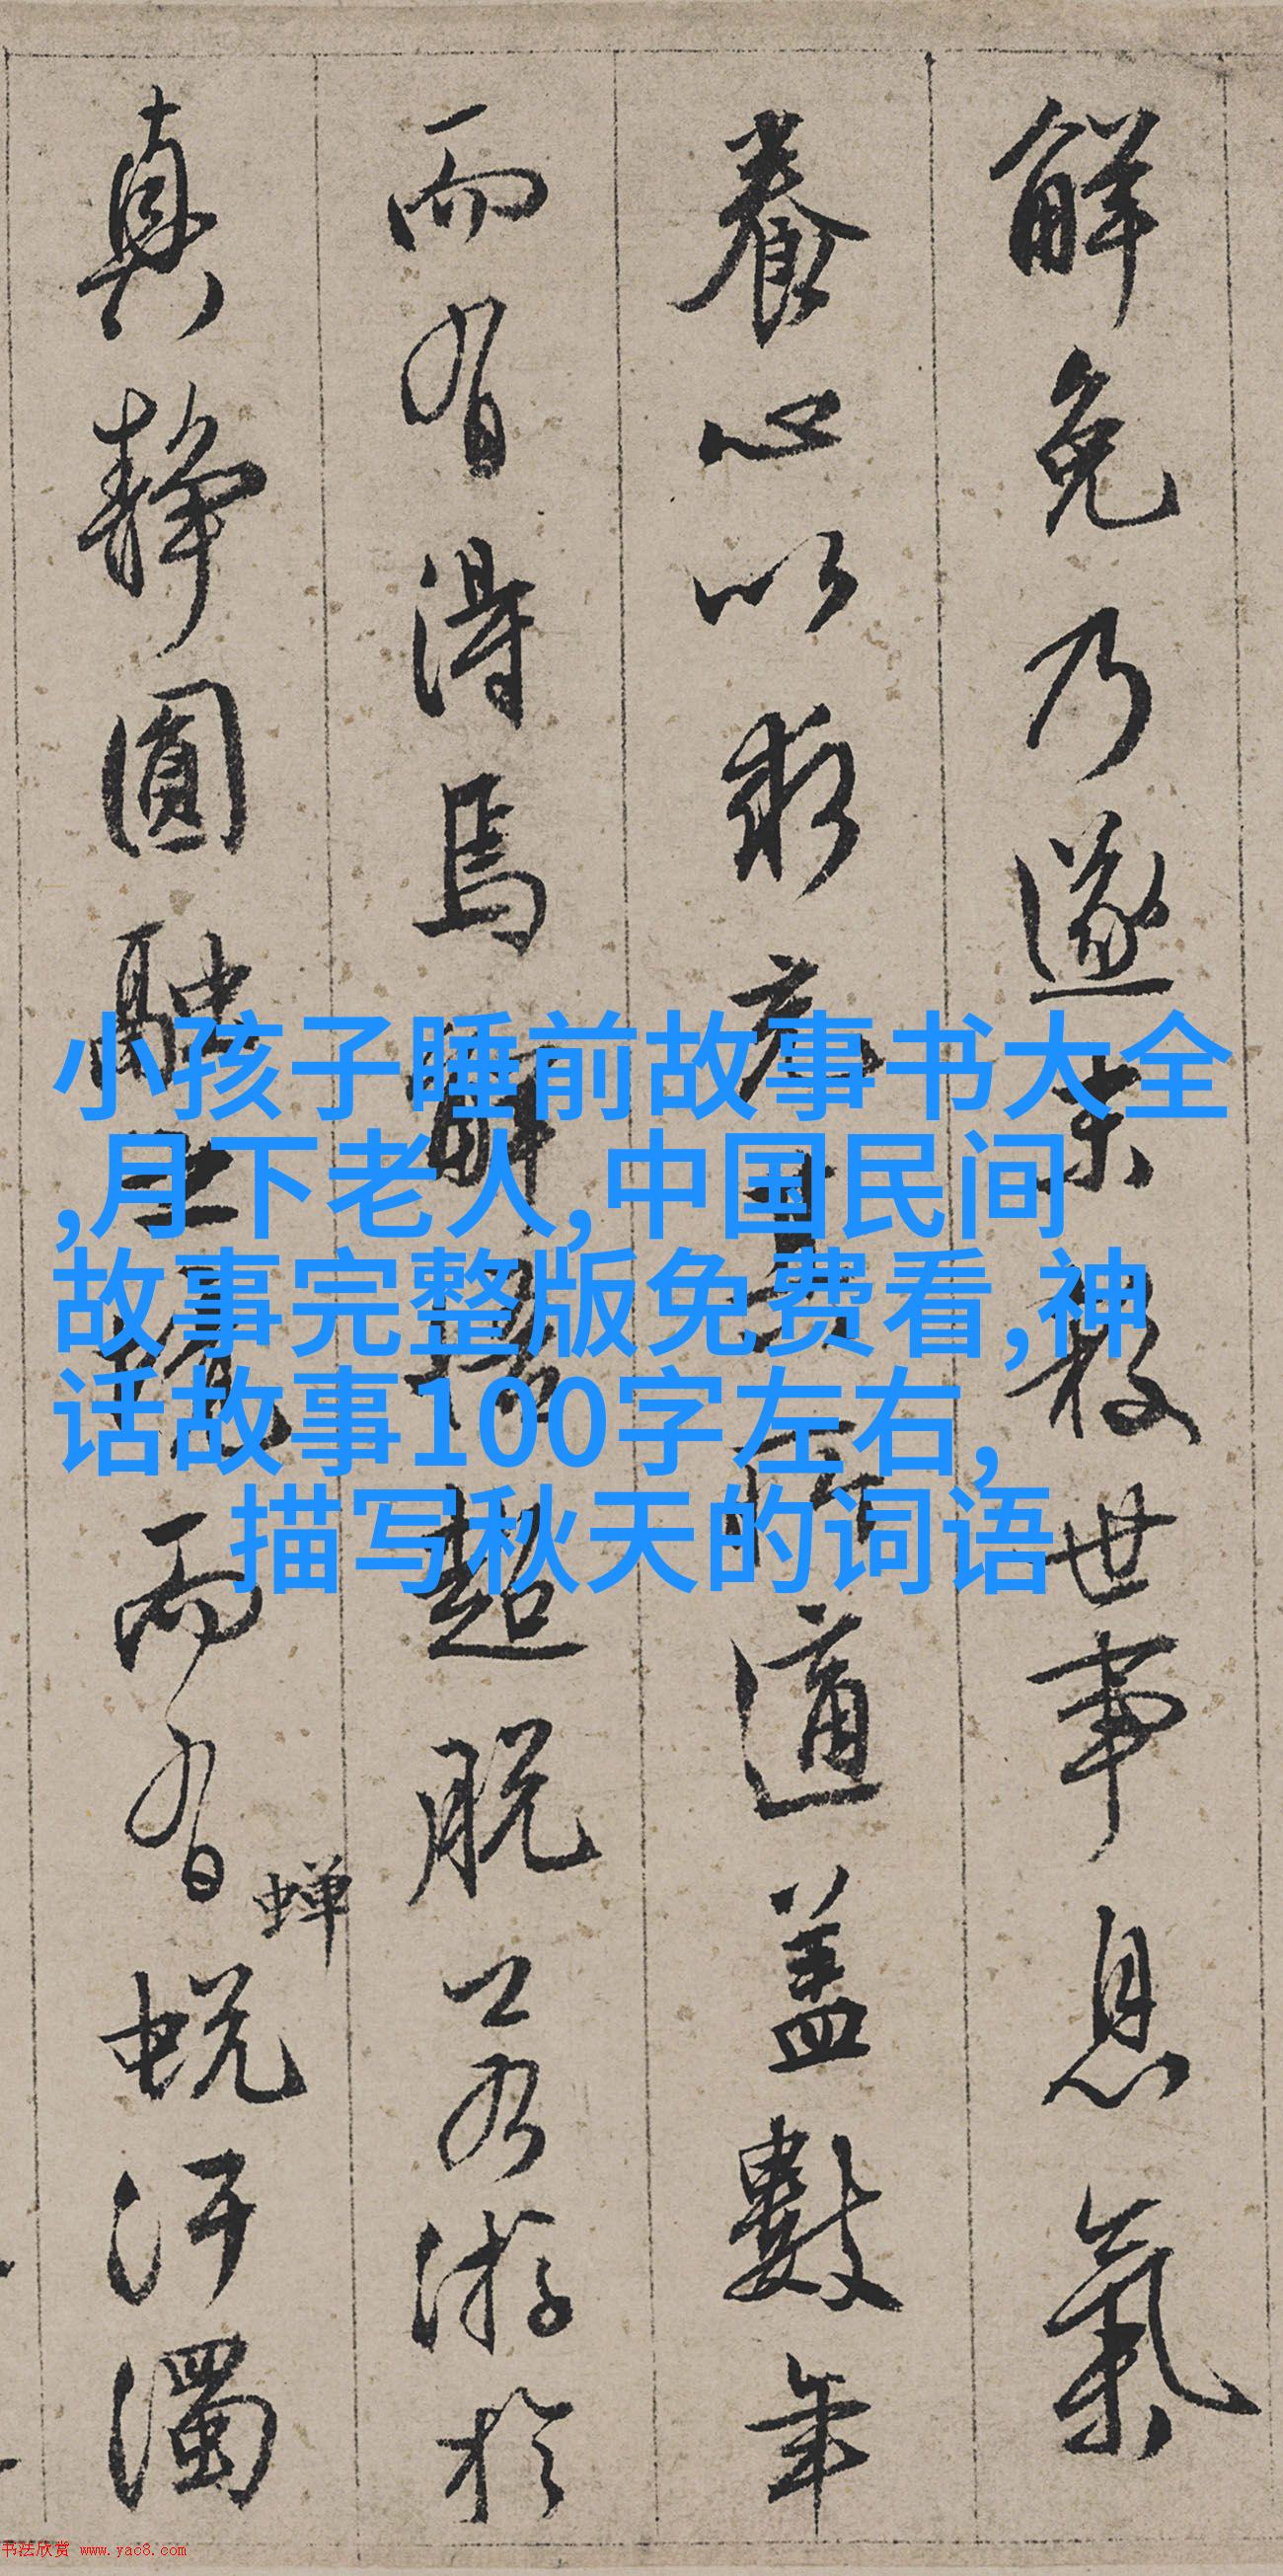 解免乃遂世事息氣
養心以求適盖數年
而有得焉解悟超脱若游於
真静圓融之境而有蝉蜕汙濁
小孩子睡前故事书大全
,月下老人,中国民间
故事完整版免费看,神
话故事100字左右,
描写秋天的词语
书法欣赏 www.yac8.com